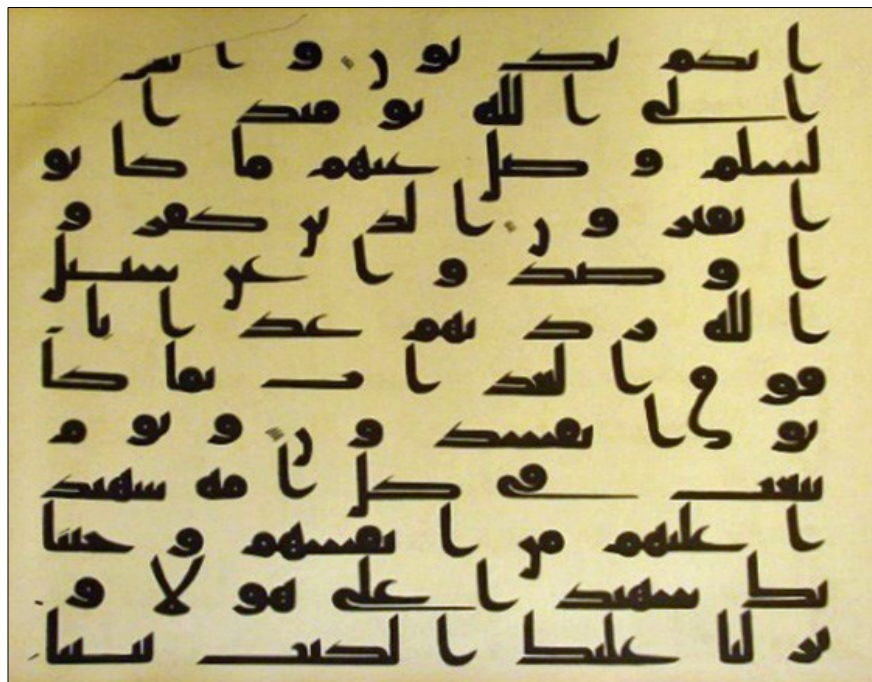 انكم لكذبون والقو
ا الى الله يومئذ ا
لسلم وضل عنهم ما كانو
ا يفترون الذين كفرو
ا وصدوا عن سبيل
الله زدنهم عذابا
فوق العذاب بما كا
نوا يفسدون ويوم
نبعث في كل امة شهيد
ا عليهم من انفسهم وجئنا
بك شهيدا على هولا و
نزلنا عليك الكتب تبينا